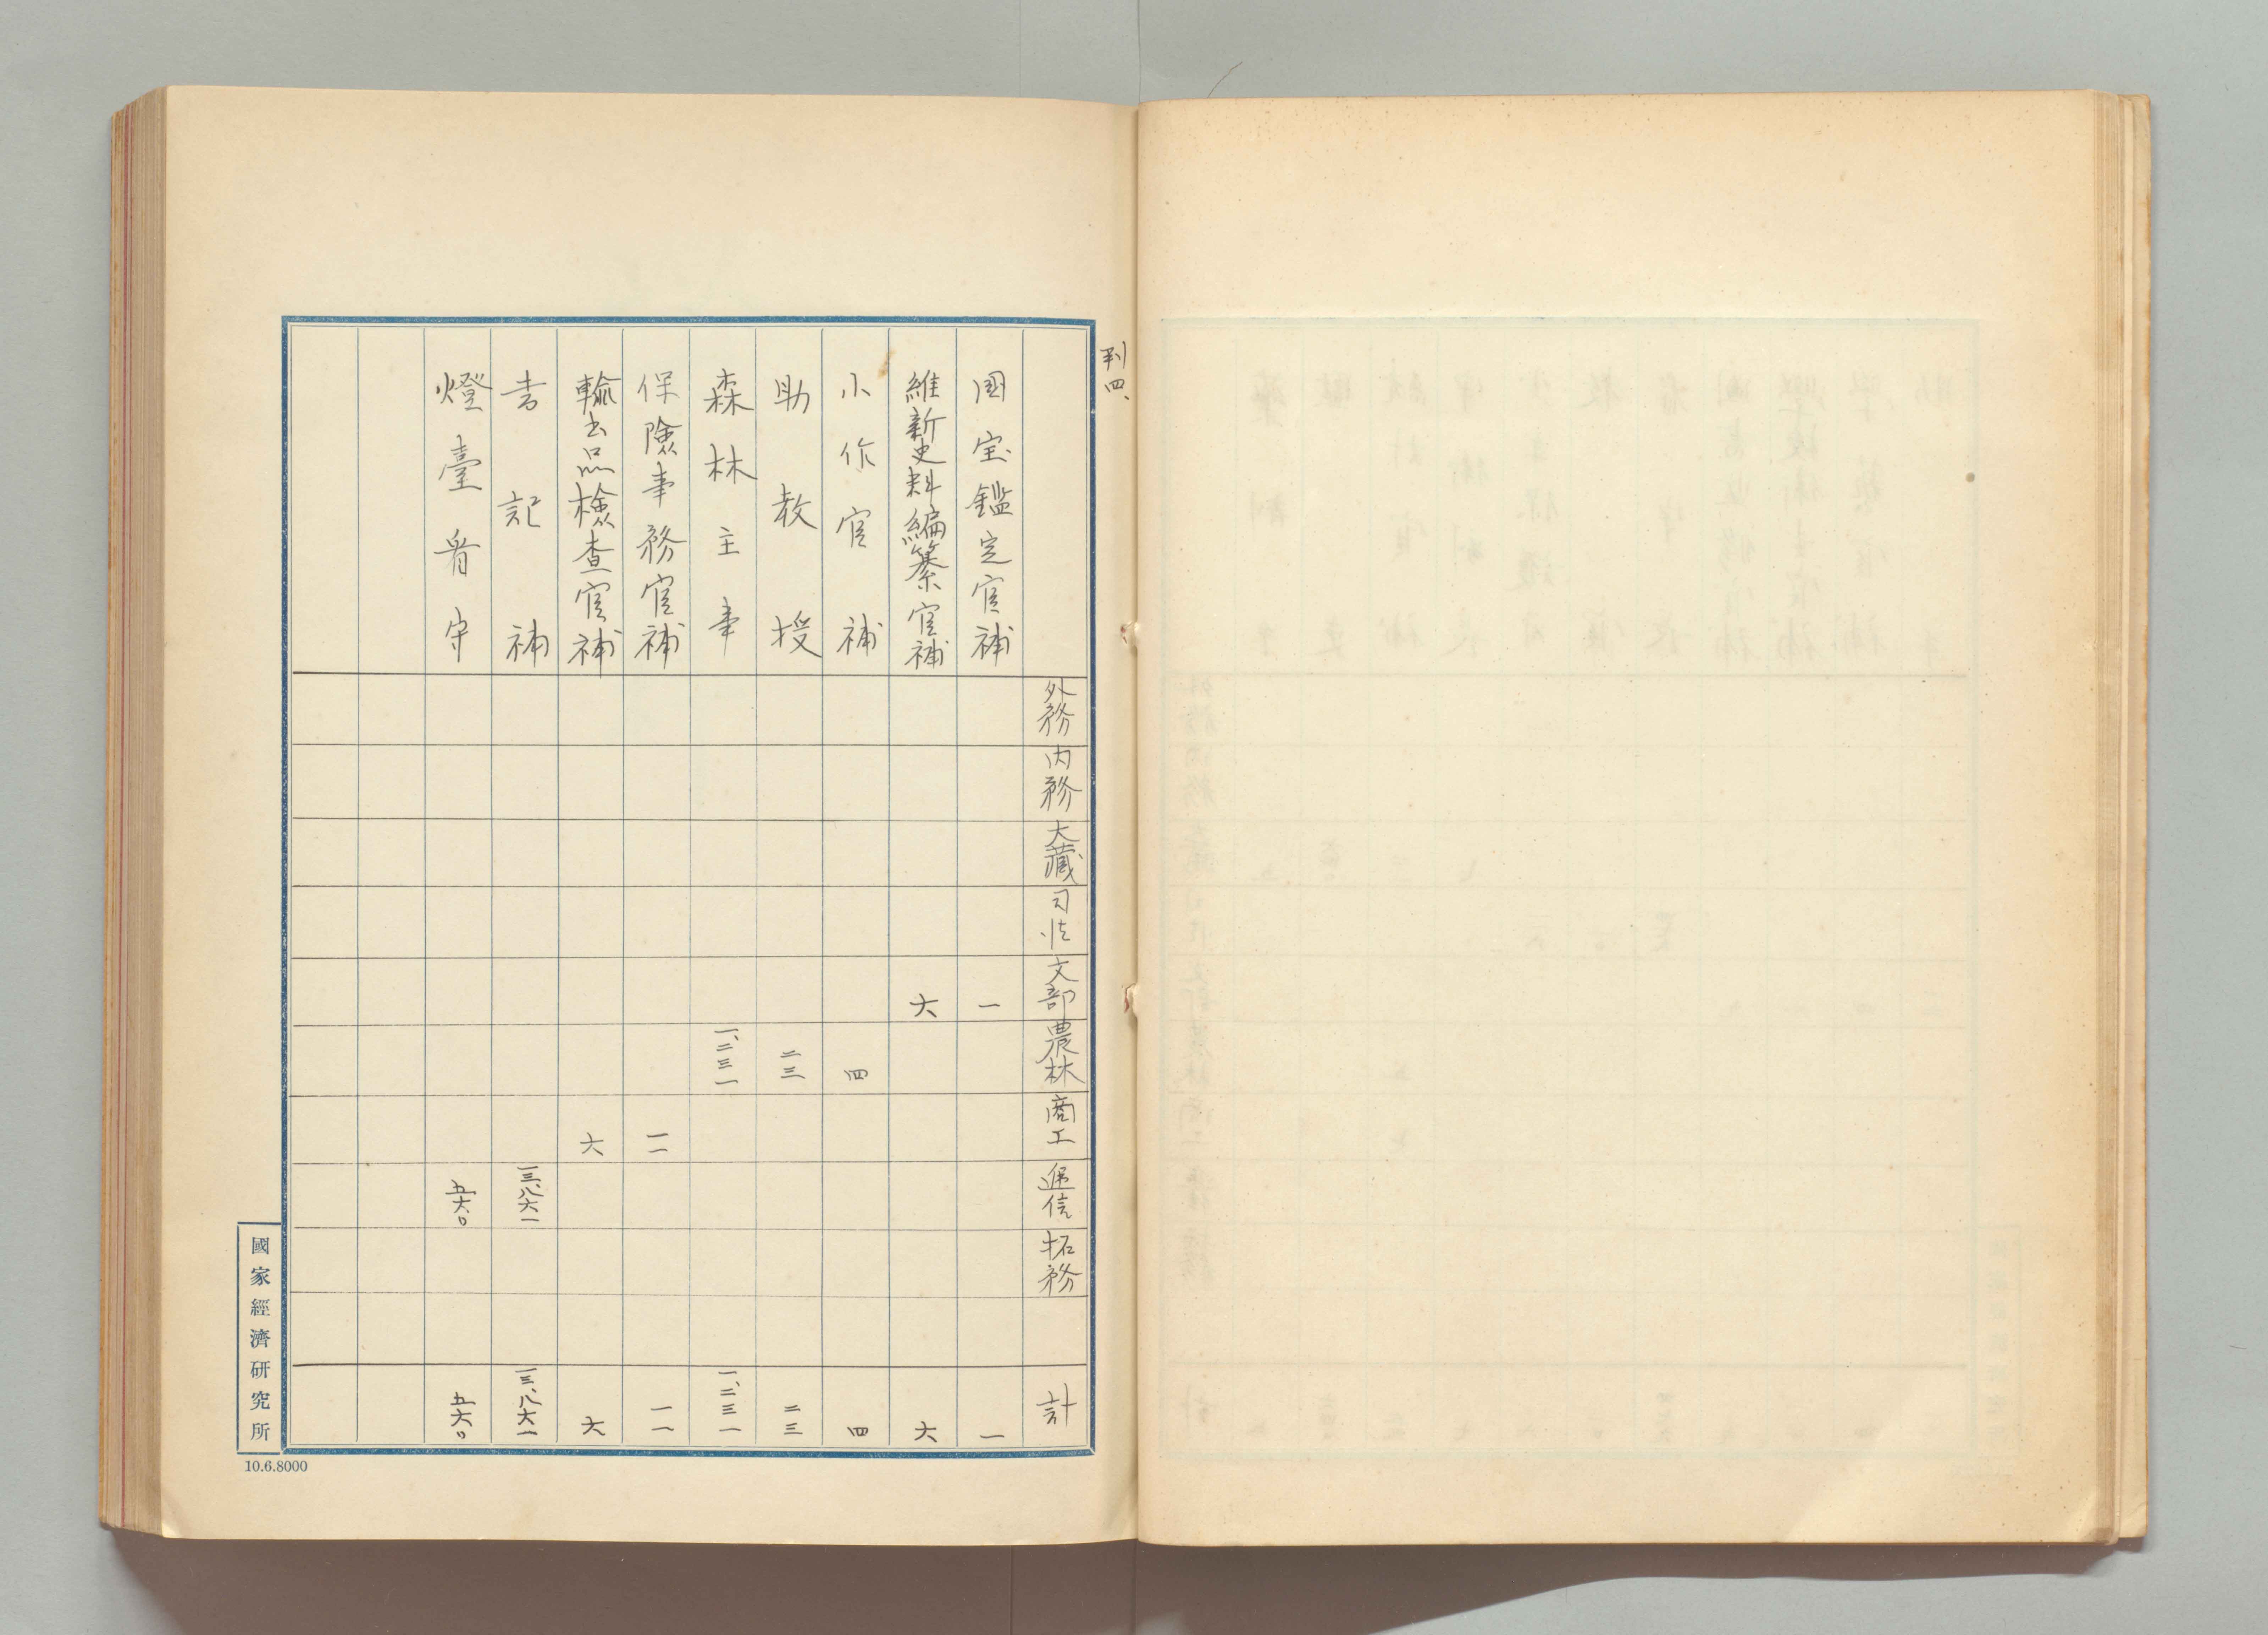 判四、
外務 内務 大藏 司法 文部 農林 商工 逓信 拓務 計
国宝鑑定官補 一 一
維新史料編纂官補 六 六
小作官補 四 四
助教授 二三 二三
森林主事 一、二三一 一、二三一
保險事務官補 一一 一一
輸出品検査官補 六 六
書記補 一三、八六一 一三、八六一
燈臺看守 五六〇 五六〇
國家經濟研究所
10.6.8000